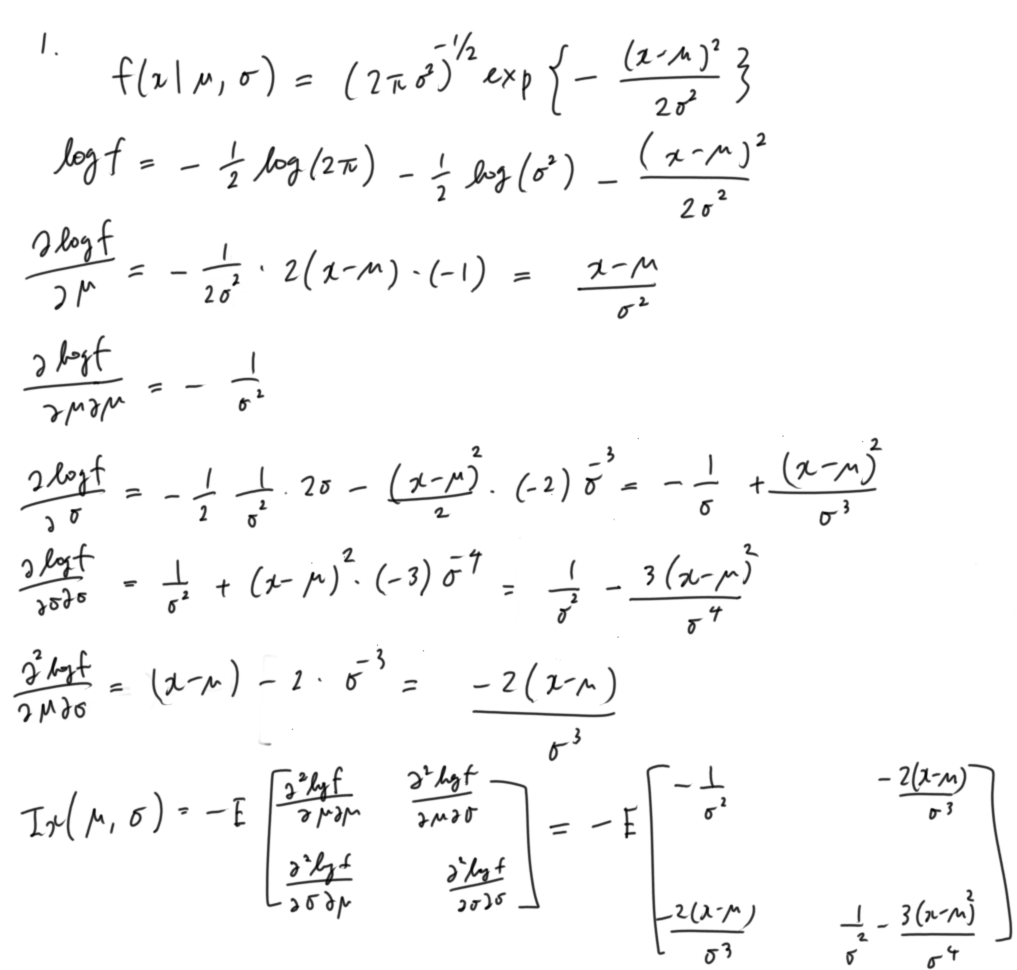 1.
f(x|μ, σ) = (2πσ²)^{-1/2} exp{ - (x-μ)²/2σ² }
log f = - 1/2 log(2π) - 1/2 log(σ²) - (x-μ)²/2σ²
∂log f/∂μ = - 1/2σ² · 2(x-μ)·(-1) = x-μ/σ²
∂log f/∂μ∂μ = - 1/σ²
∂log f/∂σ = - 1/2 1/σ² · 2σ - (x-μ)²/2 · (-2) σ^{-3} = - 1/σ + (x-μ)²/σ³
∂log f/∂σ∂σ = 1/σ² + (x-μ)² · (-3) σ^{-4} = 1/σ² - 3(x-μ)²/σ⁴
∂²log f/∂μ∂σ = (x-μ) - 2 · σ^{-3} = -2(x-μ)/σ³
Ix(μ, σ) = -E [ ∂²log f/∂μ∂μ ∂²log f/∂μ∂σ ] = -E [ - 1/σ² -2(x-μ)/σ³ ]
[ ∂²log f/∂σ∂μ ∂²log f/∂σ∂σ ] [ -2(x-μ)/σ³ 1/σ² - 3(x-μ)²/σ⁴ ]